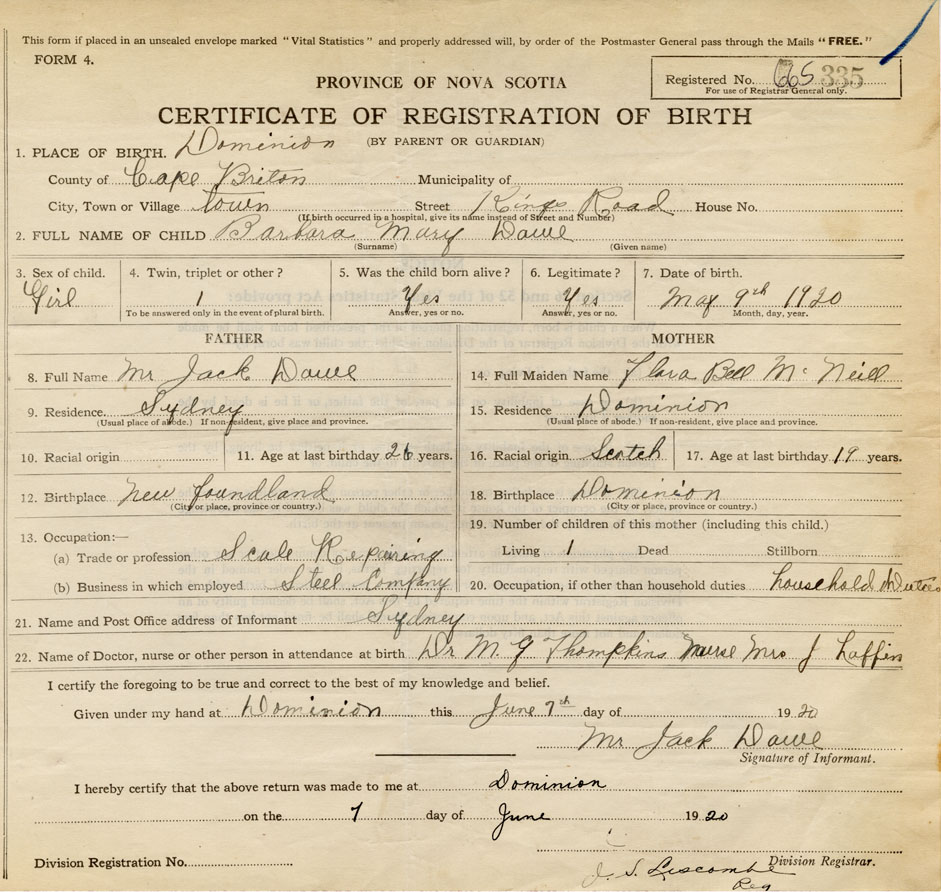 This form if placed in an unsealed envelope marked "Vital Statistics" and properly addressed will, by order of the Postmaster General pass through the Mails "FREE."
FORM 4.
Registered No. 65 335
For use of Registrar General only.
PROVINCE OF NOVA SCOTIA
CERTIFICATE OF REGISTRATION OF BIRTH
(BY PARENT OR GUARDIAN)
1. PLACE OF BIRTH. Dominion
County of Cape Briton Municipality of
City, Town or Village town Street Kings Road House No.
(If birth occurred in a hospital, give its name instead of Street and Number)
2. FULL NAME OF CHILD Barbara Mary Dawe
(Surname) (Given name)
3. Sex of child. 4. Twin, triplet or other? 5. Was the child born alive? 6. Legitimate? 7. Date of birth.
Girl 1 Yes Yes May 9th 1920
To be answered only in the event of plural birth. Answer, yes or no. Answer, yes or no. Month, day, year.
FATHER MOTHER
8. Full Name Mr Jack Dawe 14. Full Maiden Name Flora Bell Mc Neill
9. Residence. Sydney 15. Residence Dominion
(Usual place of abode.) If non-resident, give place and province. (Usual place of abode.) If non-resident, give place and province.
10. Racial origin 11. Age at last birthday 26 years. 16. Racial origin Scotch 17. Age at last birthday 19 years.
12. Birthplace New foundland 18. Birthplace Dominion
(City or place, province or country.) (City or place, province or country.)
13. Occupation:— 19. Number of children of this mother (including this child.)
(a) Trade or profession Scale Repairing Living 1 Dead Stillborn
(b) Business in which employed Steel Company 20. Occupation, if other than household duties household Duties
21. Name and Post Office address of Informant Sydney
22. Name of Doctor, nurse or other person in attendance at birth Dr M. G Thompkins Nurse Mrs J Laffin
I certify the foregoing to be true and correct to the best of my knowledge and belief.
Given under my hand at Dominion this June 7th day of 1920
Mr Jack Dawe
Signature of Informant.
I hereby certify that the above return was made to me at Dominion
on the 7 day of June 1920
Division Registration No. Division Registrar.
J. S. Liscombe
Reg